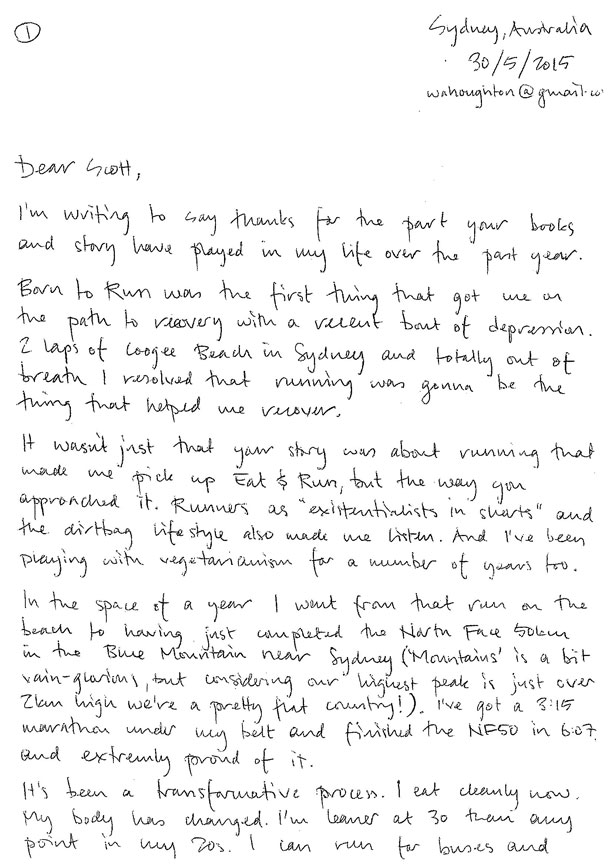 1
Sydney, Australia
30/5/2015
wahoughton@gmail.co
Dear Scott,
I'm writing to say thanks for the part your books
and story have played in my life over the past year.
Born to Run was the first thing that got me on
the path to recovery with a recent bout of depression.
2 laps of Coogee Beach in Sydney and totally out of
breath I resolved that running was gonna be the
thing that helped me recover.
It wasn't just that your story was about running that
made me pick up Eat & Run, but the way you
approached it. Runners as "existentialists in shorts" and
the dirtbag lifestyle also made me listen. And I've been
playing with vegetarianism for a number of years too.
In the space of a year I went from that run on the
beach to having just completed the North Face 50km
in the Blue Mountain near Sydney ('Mountains' is a bit
vain-glorious, but considering our highest peak is just over
2km high we're a pretty flat country!). I've got a 3:15
marathon under my belt and finished the NF50 in 6:07
and extremly proud of it.
It's been a transformative process. I eat cleanly now.
My body has changed. I'm leaner at 30 than any
point in my 20s. I can run for buses and